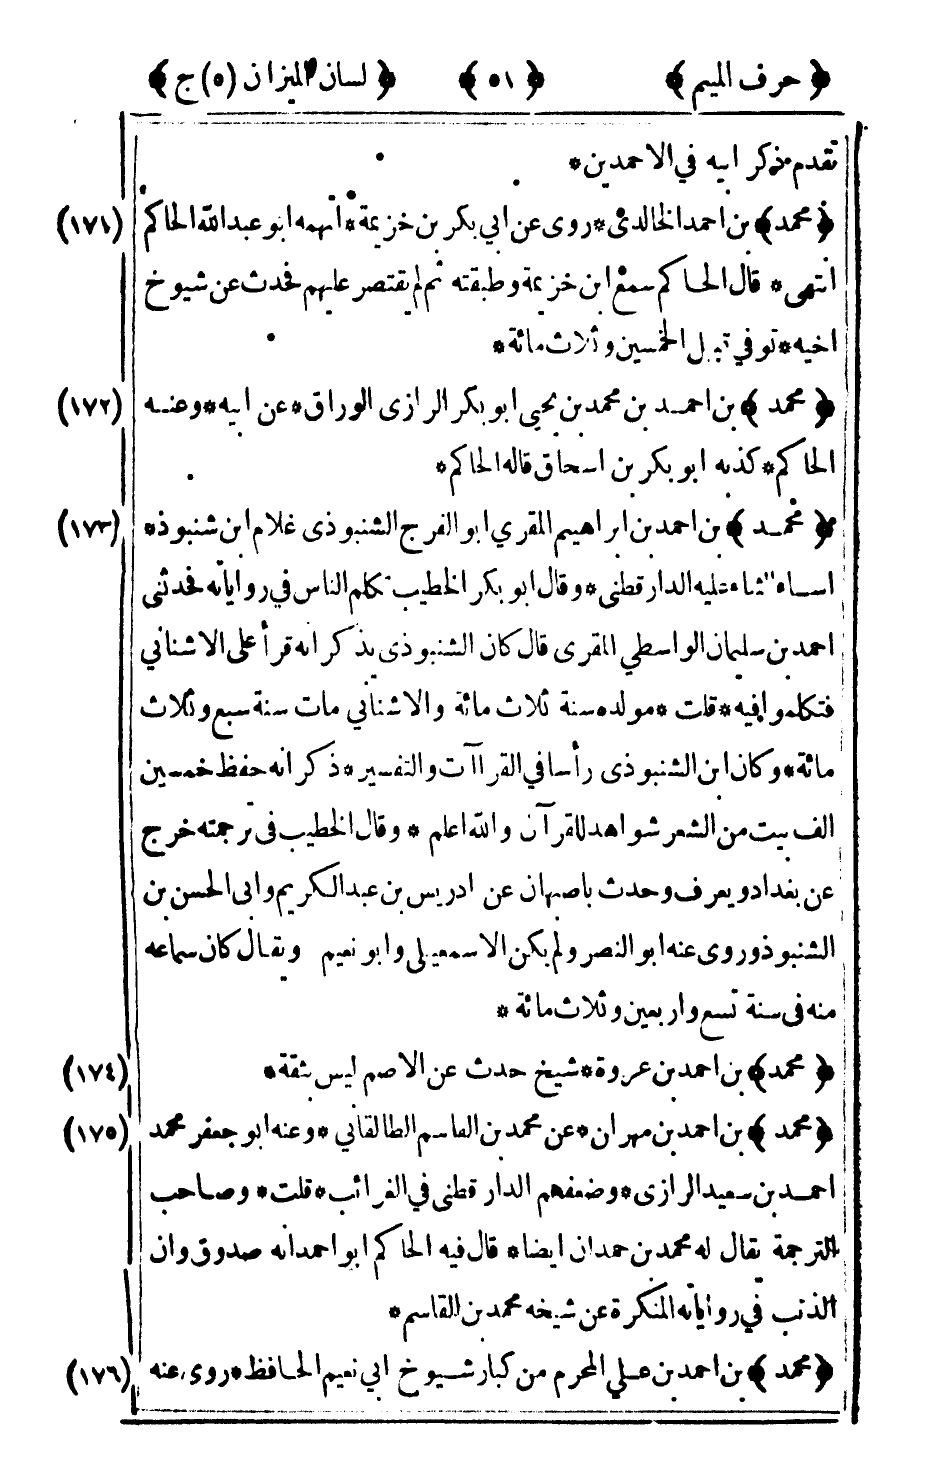 ﴿ حرف الميم ﴾ ﴿ ٥١ ﴾ ﴿ لسان الميزان (٥) ج ﴾
تقدم ذكر ابيه في الاحمدين*
﴿ محمد ﴾ بن احمد الخالدي * روى عن ابي بكر بن خزيمة * اتهمه ابو عبد الله الحاكم (١٧١)
انتهى * قال الحاكم سمع ابن خزيمة وطبقته ثم لم يقتصر عليهم فحدث عن شيوخ
اخيه * توفي قبل الخمسين وثلاث مائة *
﴿ محمد ﴾ بن احمد بن محمد بن يحيى ابو بكر الرازى الوراق * عن ابيه * وعنه (١٧٢)
الحاكم * كذبه ابو بكر بن اسحاق قاله الحاكم *
﴿ محمد ﴾ بن احمد بن ابراهيم المقري ابو الفرج الشنبوذى غلام ابن شنبوذ * (١٧٣)
اساء الثناء عليه الدار قطنى * وقال ابو بكر الخطيب تكلم الناس في رواياته فحدثنى
احمد بن سليمان الواسطي المقرى قال كان الشنبوذى يذكر انه قرأ على الاشناني
فتكلموا فيه * قلت * مولده سنة ثلاث مائة والاشناني مات سنة سبع وثلاث
مائة * وكان ابن الشنبوذى رأسا في القراآت والتفسير * ذكر انه حفظ خمسين
الف بيت من الشعر شواهد للقرآن والله اعلم * وقال الخطيب فى ترجمته خرج
عن بغداد ويعرف وحدث باصبهان عن ادريس بن عبد الكريم وابى الحسن بن
الشنبوذ وروى عنه ابو النصر ولم يكن الاسمعيلي وابو نعيم ويقال كان سماعه
منه فى سنة تسع واربعين وثلاث مائة *
﴿ محمد ﴾ بن احمد بن عروة * شيخ حدث عن الاصم ليس بثقة * (١٧٤)
﴿ محمد ﴾ بن احمد بن مهران * عن محمد بن القاسم الطالقاني * وعنه ابو جعفر محمد (١٧٥)
احمد بن سعيد الرازى * وضعفهم الدار قطنى في الغرائب * قلت * وصاحب
الترجمة يقال له محمد بن حمدان ايضا * قال فيه الحاكم ابو احمد انه صدوق وان
الذنب في رواياته المنكرة عن شيخه محمد بن القاسم *
﴿ محمد ﴾ بن احمد بن علي المحرم من كبار شيوخ ابي نعيم الحافظ * روى عنه (١٧٦)